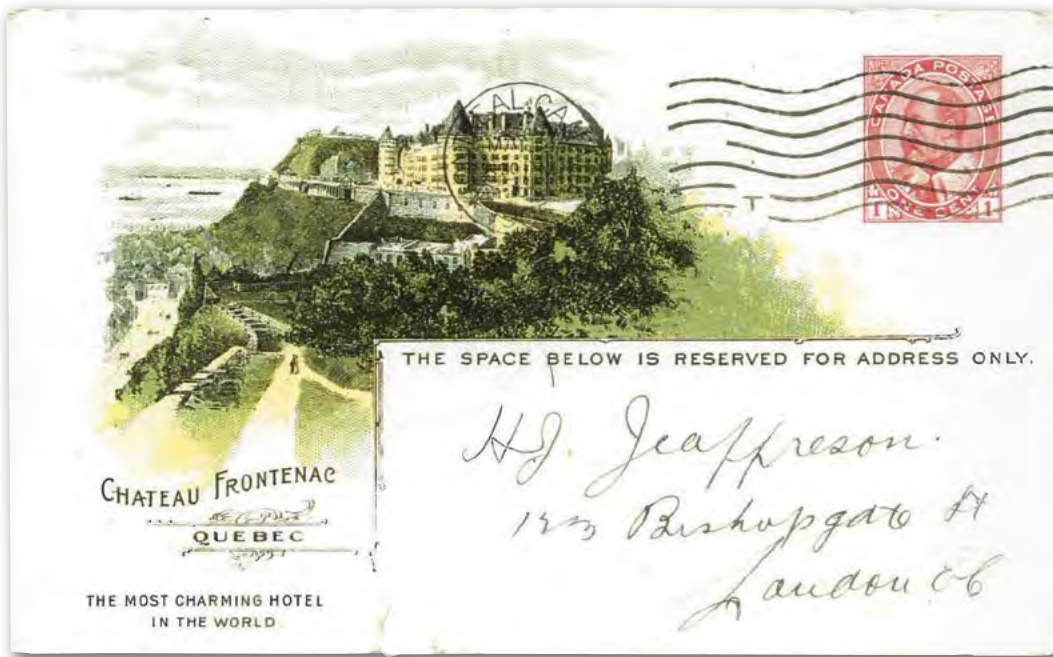 CANADA POSTAGE
1 ONE CENT 1
T
THE SPACE BELOW IS RESERVED FOR ADDRESS ONLY.
H J. Jeaffreson.
Bishopgate St
London EC
CHATEAU FRONTENAC
QUEBEC
THE MOST CHARMING HOTEL
IN THE WORLD